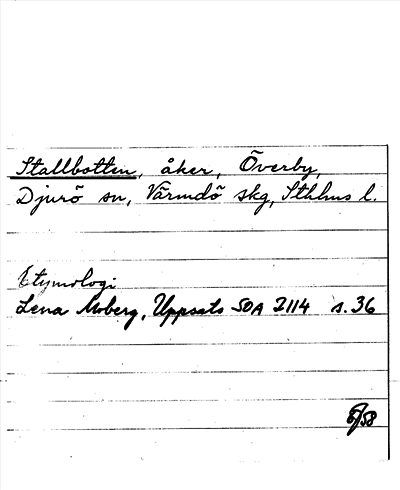 Stallbotten, åker, Överby,
Djurö sn, Värmdö skg, Sthlms l.
Etymologi
Lena Moberg, Uppsats SOA 2114 s. 36